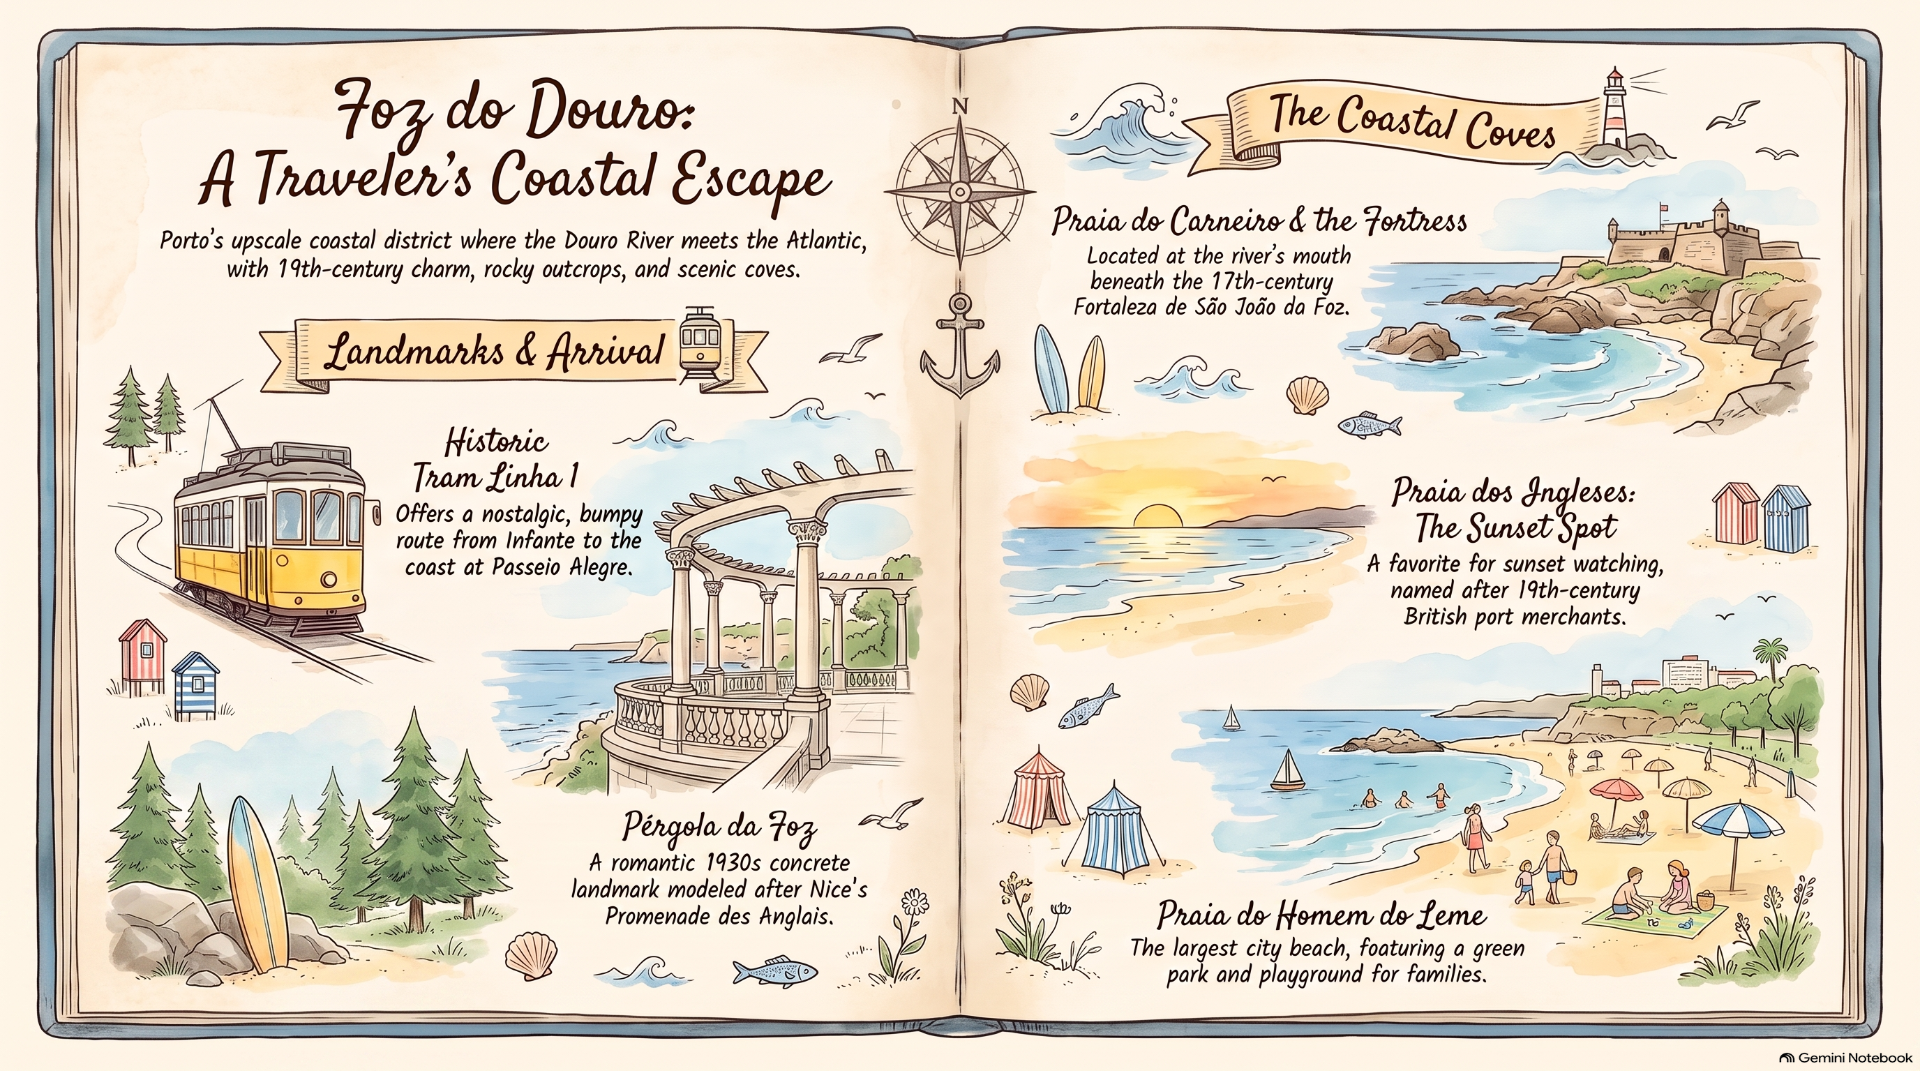 Foz do Douro:
A Traveler's Coastal Escape
Porto's upscale coastal district where the Douro River meets the Atlantic,
with 19th-century charm, rocky outcrops, and scenic coves.
Landmarks & Arrival
Historic
Tram Linha 1
Offers a nostalgic, bumpy
route from Infante to the
coast at Passeio Alegre.
Pérgola da Foz
A romantic 1930s concrete
landmark modeled after Nice's
Promenade des Anglais.
N
The Coastal Coves
Praia do Carneiro & the Fortress
Located at the river's mouth
beneath the 17th-century
Fortaleza de São João da Foz.
Praia dos Ingleses:
The Sunset Spot
A favorite for sunset watching,
named after 19th-century
British port merchants.
Praia do Homem do Leme
The largest city beach, foaturing a green
park and playground for families.
Gemini Notebook